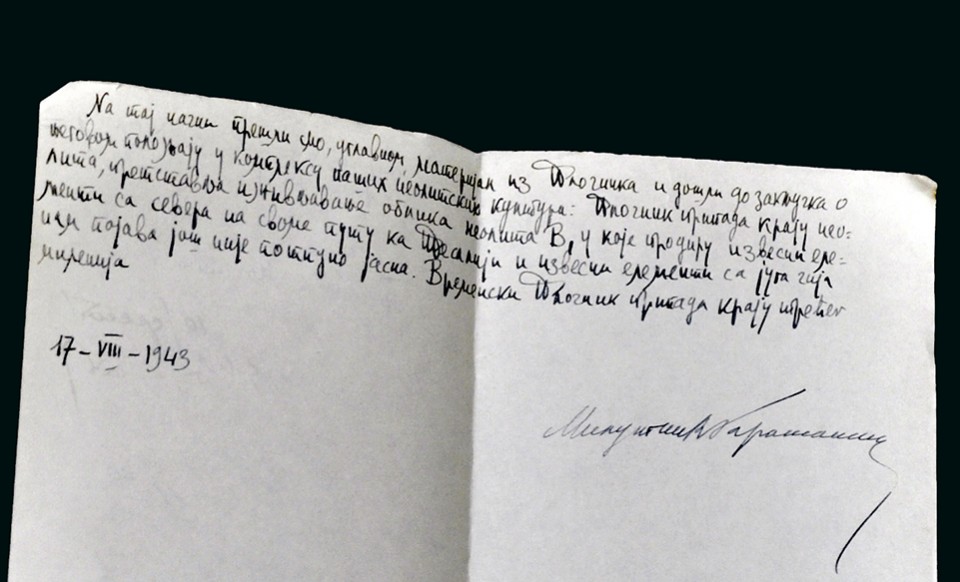 На тај начин прешли смо, углавном, материјал из Плочника и дошли до закључка о
његовом положају у контексу наших неолитских култура: Плочник припада крају нео=
лита, претставља изживљавање облика неолита В, у које продиру извесни еле=
менти са севера на своме путу ка Тесалији и извесни елементи са југа чија
нам појава још није потпуно јасна. Временски Плочник припада крају трећег
милениja
17-VIII-1943
Милутин Гарашанин